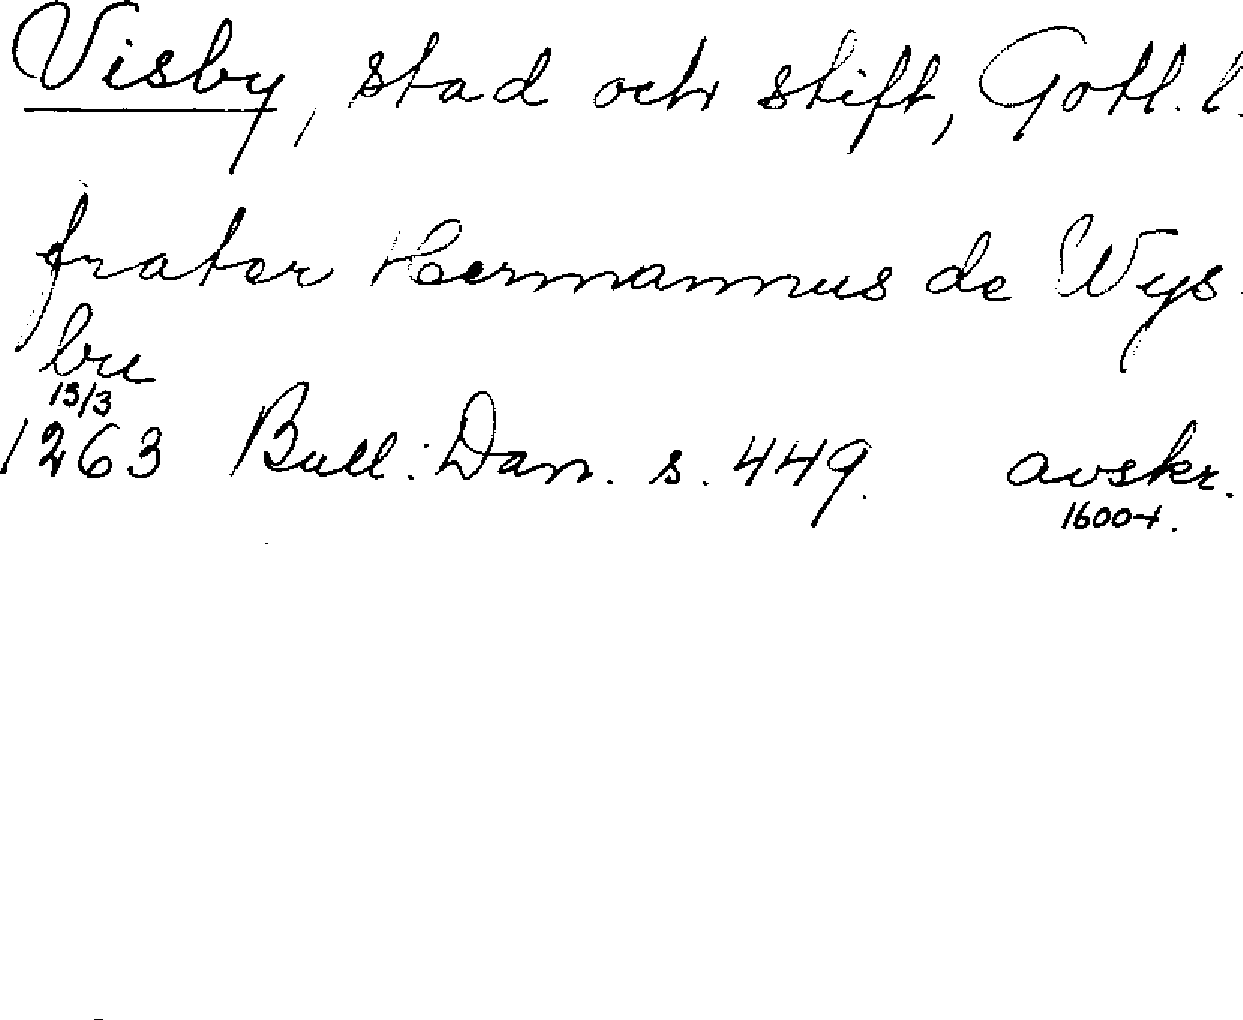 Visby, stad och stift, Gotl. l.
frater Hermannus de Wys-
bu
13/3
1263 Bull. Dan. s. 449. avskr.
1600-t.